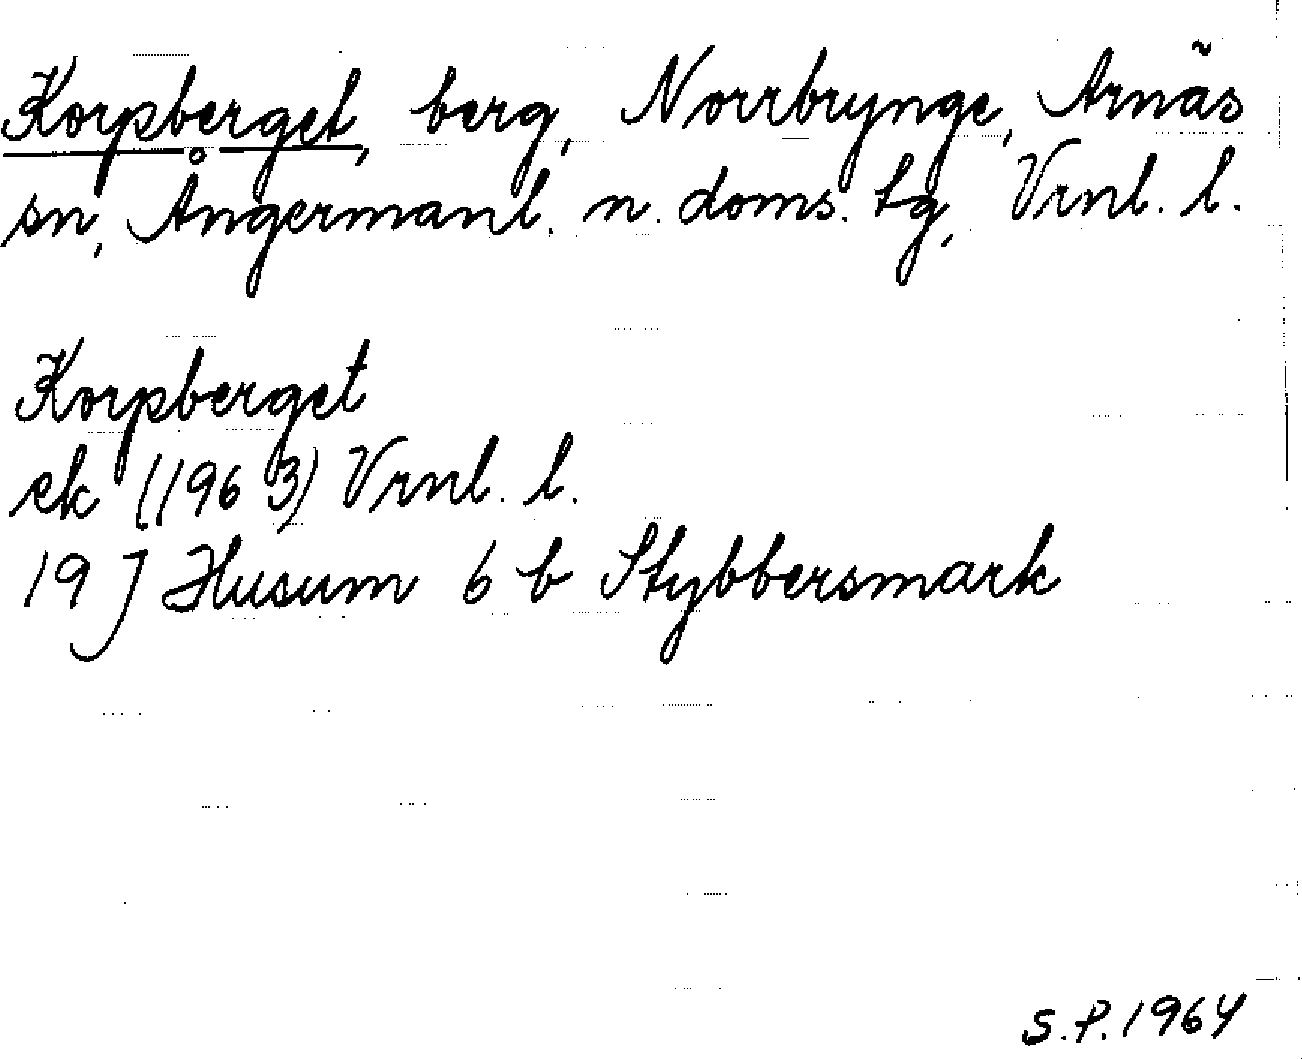 Korpberget, berg, Norrbrynge, Arnäs
sn, Ångermanl. n. doms. tg, Vrnl. l.
Korpberget
ek (1963) Vrnl. l.
19 J Husum 6 b Stybbersmark
S.P. 1964